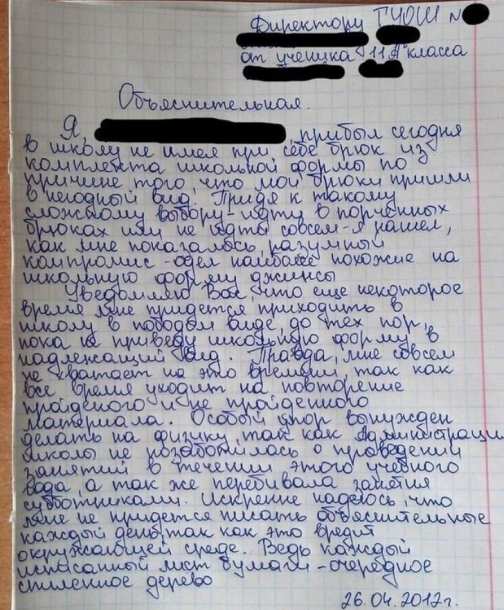 Директору ГУОШ №
от ученика 11"А" класса
Объяснительная.
Я, , прибыл сегодня
в школу не имея при себе брюк из
комплекта школьной формы по
причине того, что мои брюки пришли
в негодный вид. Придя к такому
сложному выбору - идти в порченных
брюках или не идти совсем - я нашел,
как мне показалось, разумный
компромис - одел наиболее похожие на
школьную форму джинсы
Уведомляю Вас, что еще некоторое
время мне придется приходить в
школу в подобом виде, до тех пор,
пока не приведу школьную форму в
надлежащий вид. Правда, мне совсем
не хватает на это времени, так как
все время уходит на повторение
пройденого и не пройденного
материала. Особый упор вынужден
делать на физику, так как Администрация
школы не позаботилась о проведении
занятий в течении этого учебного
года, а так же перебивала занятия
субботниками. Искренне надеюсь, что
мне не придется писать объяснительные
каждый день, так как это вредит
окружающей среде. Ведь каждый
исписанный лист бумаги - очередное
спиленное дерево
26.04.2012г.